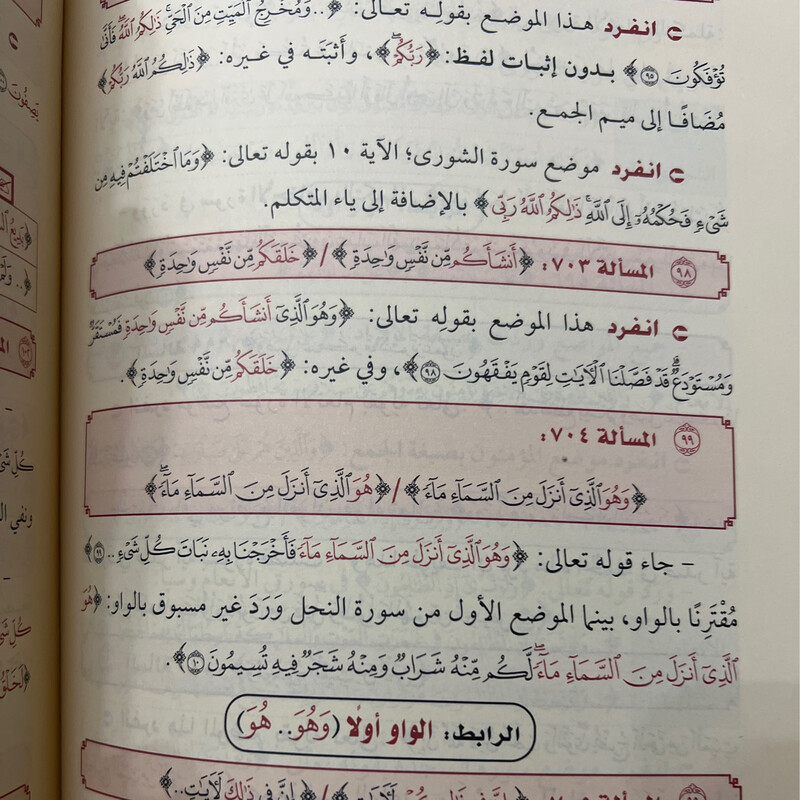 انفرد هذا الموضع بقوله تعالى: ﴿..وَمُخْرِجُ ٱلْمَيِّتِ مِنَ ٱلْحَيِّ ۚ ذَٰلِكُمُ ٱللَّهُ ۖ فَأَنَّىٰ
تُؤْفَكُونَ ٩٥﴾ بدون إثبات لفظ: ﴿رَبُّكُمْ ۖ﴾، وأثبتَه في غيره: ﴿ذَٰلِكُمُ ٱللَّهُ رَبُّكُمْ﴾
مُضَافًا إلى ميم الجمع.
انفرد موضع سورة الشورى؛ الآية ١٠ بقوله تعالى: ﴿وَمَا ٱخْتَلَفْتُمْ فِيهِ مِن
شَىْءٍ فَحُكْمُهُۥٓ إِلَى ٱللَّهِ ۚ ذَٰلِكُمُ ٱللَّهُ رَبِّى﴾ بالإضافة إلى ياء المتكلم.
٩٨ المسألة ٧٠٣: ﴿أَنشَأَكُم مِّن نَّفْسٍ وَٰحِدَةٍ﴾/﴿خَلَقَكُم مِّن نَّفْسٍ وَٰحِدَةٍ﴾
انفرد هذا الموضع بقولِه تعالى: ﴿وَهُوَ ٱلَّذِىٓ أَنشَأَكُم مِّن نَّفْسٍ وَٰحِدَةٍ فَمُسْتَقَرٌّ
وَمُسْتَوْدَعٌ ۗ قَدْ فَصَّلْنَا ٱلْءَايَٰتِ لِقَوْمٍ يَفْقَهُونَ ٩٨﴾، وفي غيره: ﴿خَلَقَكُم مِّن نَّفْسٍ وَٰحِدَةٍ﴾.
٩٩ المسألة ٧٠٤:
﴿وَهُوَ ٱلَّذِىٓ أَنزَلَ مِنَ ٱلسَّمَآءِ مَآءً﴾/﴿هُوَ ٱلَّذِىٓ أَنزَلَ مِنَ ٱلسَّمَآءِ مَآءً ۖ﴾
- جاء قوله تعالى: ﴿وَهُوَ ٱلَّذِىٓ أَنزَلَ مِنَ ٱلسَّمَآءِ مَآءً فَأَخْرَجْنَا بِهِۦ نَبَاتَ كُلِّ شَىْءٍ .. ٩٩﴾
مُقْتَرِنًا بالواو، بينما الموضع الأول من سورة النحل وَرَدَ غير مسبوق بالواو: ﴿هُوَ
ٱلَّذِىٓ أَنزَلَ مِنَ ٱلسَّمَآءِ مَآءً ۖ لَّكُم مِّنْهُ شَرَابٌ وَمِنْهُ شَجَرٌ فِيهِ تُسِيمُونَ ١٠﴾.
الرابط: الواو أولًا (وَهُوَ.. هُوَ)
﴿إِنَّ فِى ذَٰلِكَ لَءَايَٰتٍ..﴾